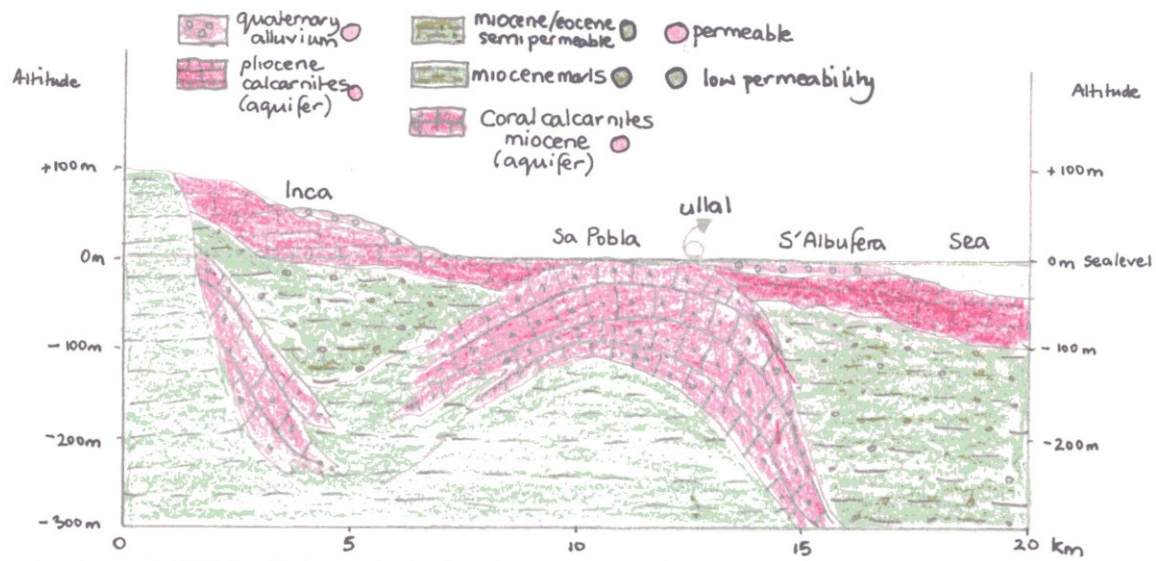 quaternary
alluvium
pliocene
calcarnites
(aquifer)
miocene/eocene
semi permeable
miocene marls
Coral calcarnites
miocene
(aquifer)
permeable
low permeability
Altitude
Altitude
+100m
+100m
Inca
ullal
Sa Pobla
S'Albufera
Sea
0m
0m sealevel
-100m
-100m
-200m
-200m
-300m
0
5
10
15
20 km